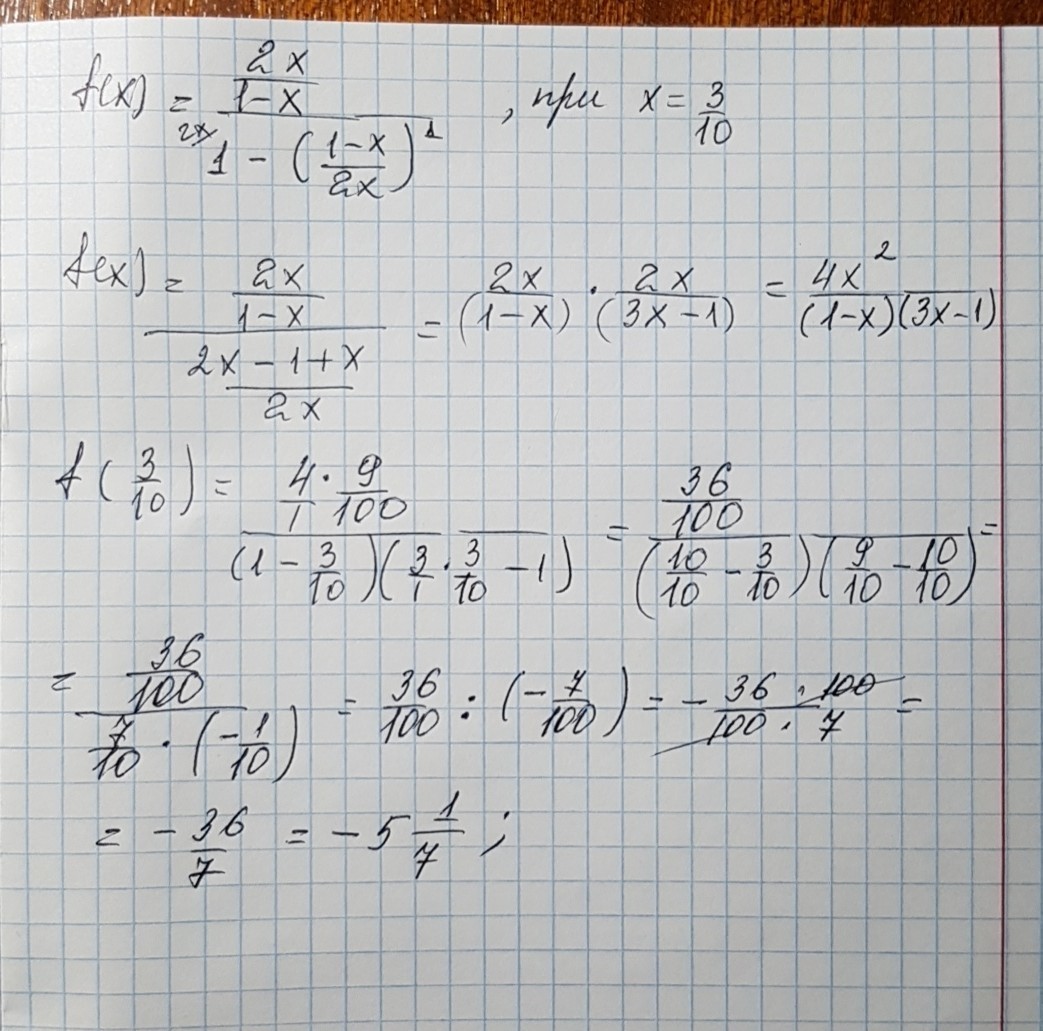 f(x) = (2x/(1-x)) / (1 - ((1-x)/2x)), при x = 3/10
2x 1
f(x) = (2x/(1-x)) / ((2x-1+x)/2x) = 2x/(1-x) · 2x/(3x-1) = 4x²/((1-x)(3x-1))
f(3/10) = (4/1 · 9/100) / ((1 - 3/10)(3/1 · 3/10 - 1)) = (36/100) / ((10/10 - 3/10)(9/10 - 10/10)) =
= (36/100) / (7/10 · (-1/10)) = 36/100 : (-7/100) = - (36 · 100)/(100 · 7) =
= - 36/7 = - 5 1/7 ;